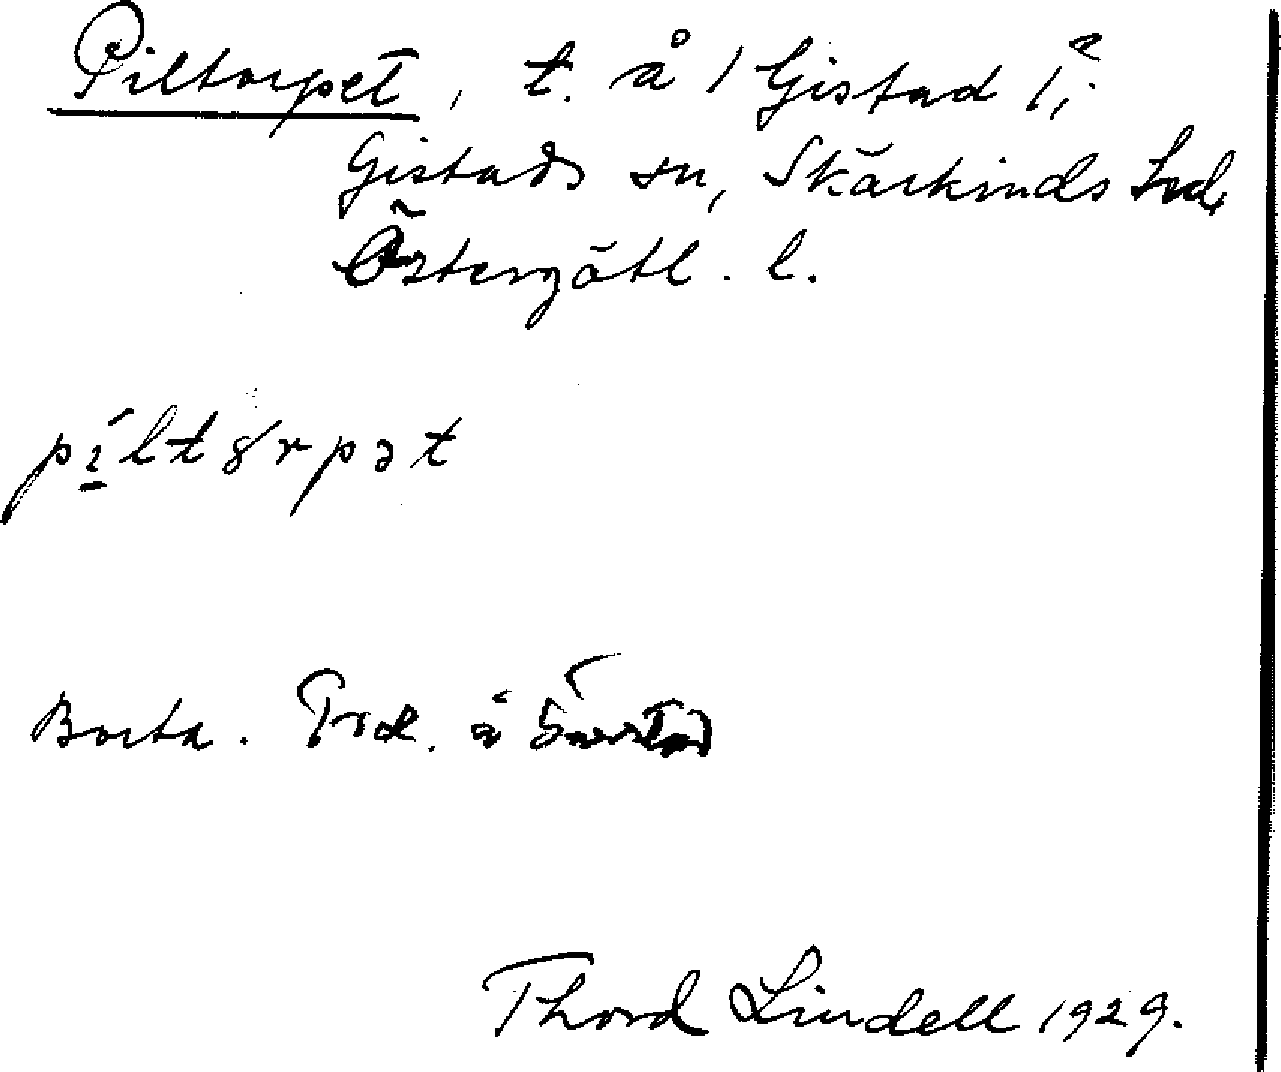 Piltorpet, t. å 1 Gistad 1, i
Gistads sn, Skärkinds hd,
Östergötl. l.
pı̲́ltȣrpət
Borta. Trol. å
Thord Lindell 1929.